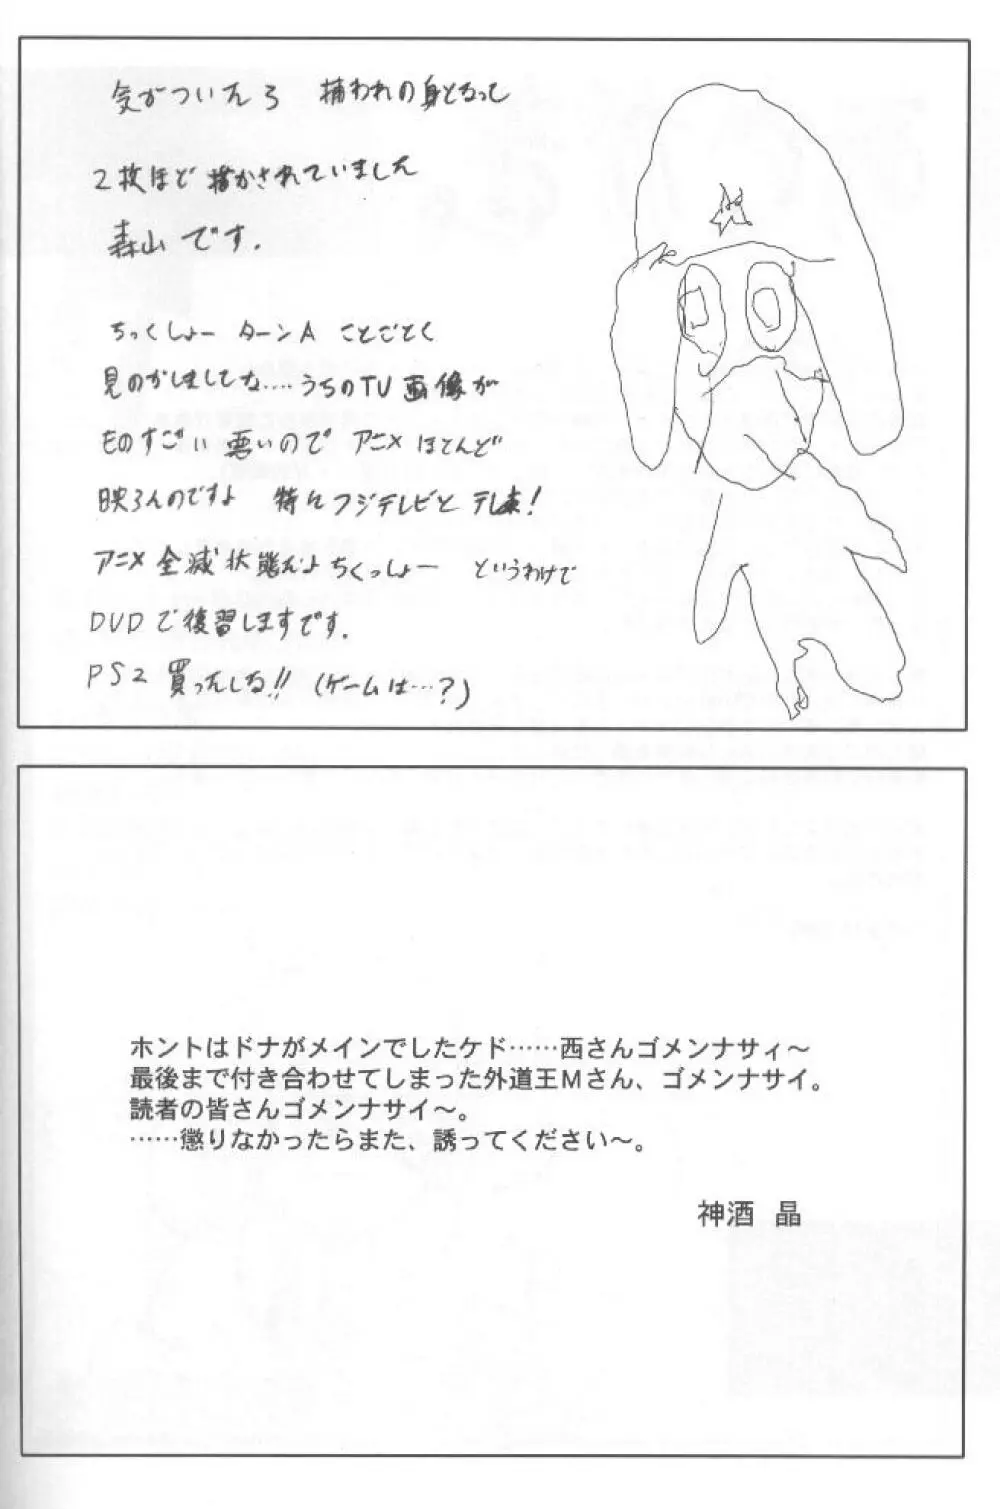 気がついたら 捕われの身となって
2枚ほど描かされていました
森山です.
ちっくしょー ターンA ことごとく
見のがしましてな....うちのTV画像が
ものすごい悪いので アニメほとんど
映らんのですよ 特にフジテレビとテレ東!
アニメ全滅状態だよちくっしょー というわけで
DVDで復習しますです.
PS2買ったしな!! (ゲームは…?)
ホントはドナがメインでしたケド……西さんゴメンナサィ～
最後まで付き合わせてしまった外道王Mさん、ゴメンナサイ。
読者の皆さんゴメンナサイ～。
……懲りなかったらまた、誘ってください～。
神酒 晶